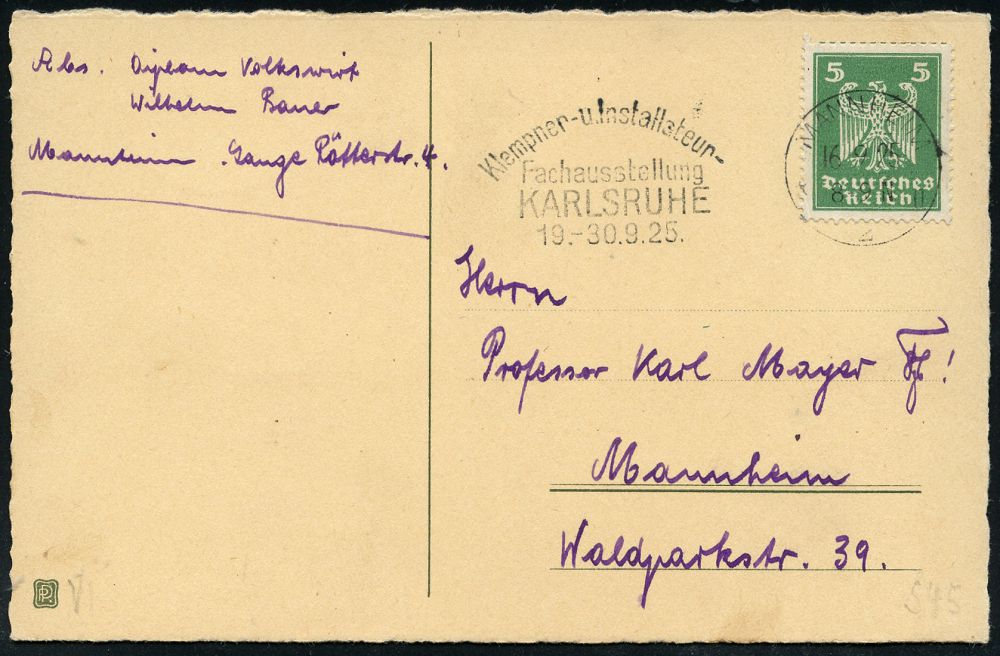 Abs. Diplom Volkswirt
Wilhelm Bauer
Mannheim. Lange Rötterstr. 4.
Klempner-u.Installateur-
Fachausstellung
KARLSRUHE
19.-30.9.25.
5 5
Deutsches
Reich
MANNHEIM
16.9.25
8-9 N
2
Herrn
Professor Karl Mayer !
Mannheim
Waldparkstr. 39.
VI
S45